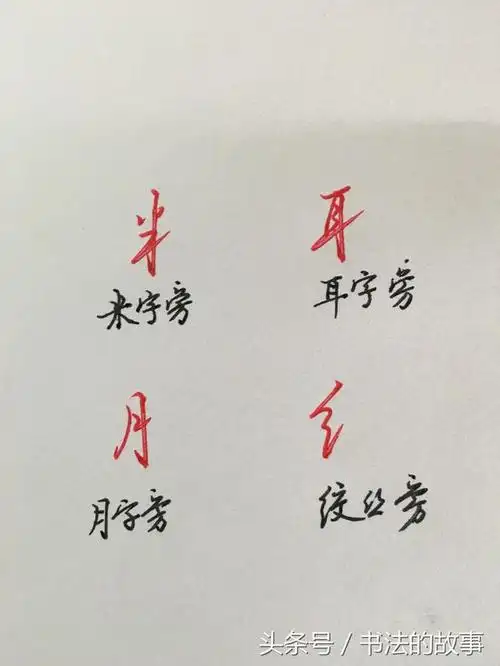 米 耳
米字旁 耳字旁
月 纟
月字旁 绞丝旁
头条号 / 书法的故事